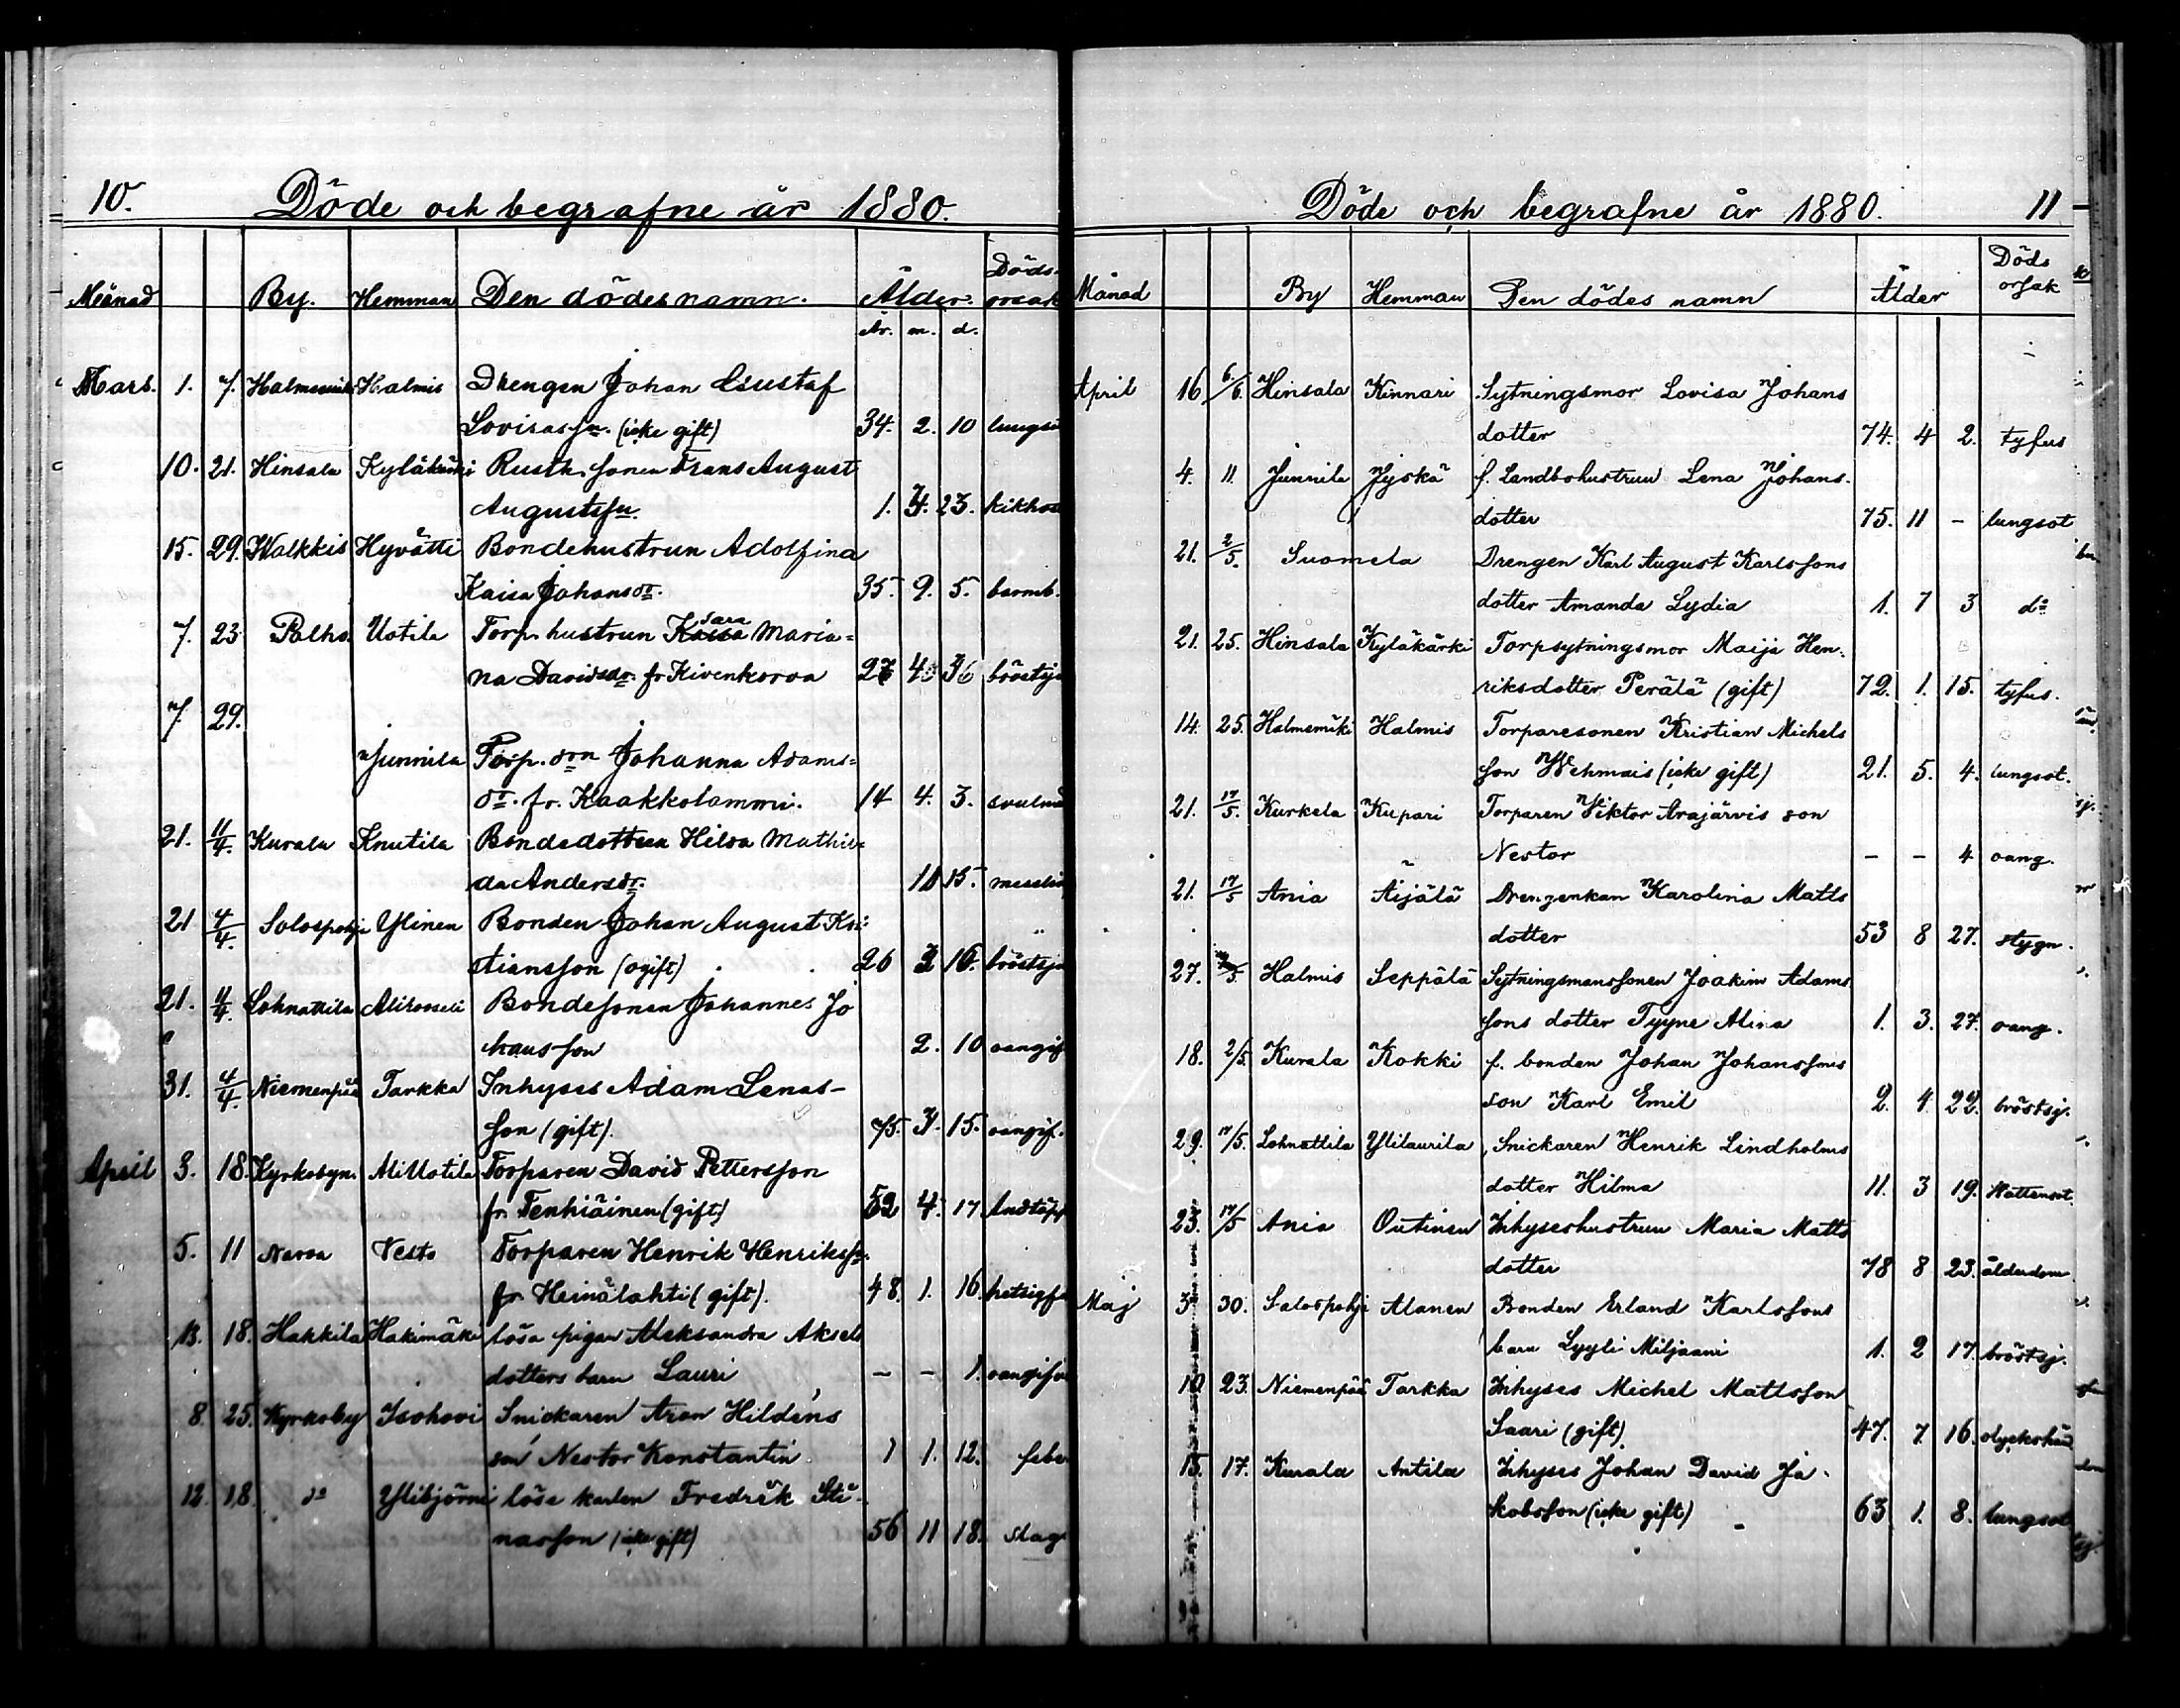 10. Döde och begrafne år 1880.
Månad By. Hemman Den dödes namn. Ålder. Döds-
orsak
År. m. d.
Mars. 1. 7. Halmis Drengen Johan Gustaf
Lovisasson. (icke gift) 34. 2. 10
10. 21. Hinsala Kyläkärki Rusth. sonen Frans August
Augustsson. 1. 23. kikhos
15. 29. Walkkis Hyvätti Bondehustrun Adolfina
Kaisa Johansdr. 35. 9. 5. barnb.
7. 23 Palho Uotila Torp. hustrun Sara Maria-
na Davidsdr. fr Kivenkorva
7. 29.
Junnila Torp. drn Johanna Adams-
dr. fr. Kaakkolammi. 14 4. 3.
21. 11/4. Kurala Knutila Bondedottren Hilda Mathil-
da Andersdr. 15.
21 4/4. Salospohja Ylinen Bonden Johan August Kri-
stiansson (ogift) 26 bröstsju
21. 4/4. Lohnattila Bondesonen Johannes Jo
hansson 2. 10 oangif
31. 4/4. Niemenpää Tarkka Inhyses Adam Lenas-
son (gift). 75. 15. oangif.
April 3. 18. Kyrkobyn. AliUotila Torparen David Pettersson
fr. Tenhiäinen (gift) 52 4. 17 Andtäpp
5. 11 Narva Vesto Torparen Henrik Henrikss.
fr Heinälahti (gift). 48. 1. 16.
13. 18. Hakkila Hakimäki lösa pigan Aleksandra Aksels
dotters barn Lauri – – 1. oangifv
8. 25. Kyrkoby Isohovi Snickaren Aron Hildéns
son Nestor Konstantin 1 1. 12. febe
12. 18. do Ylibjörni lösa karlen Fredrik Sti-
nasson (icke gift) 56 11 18. slag
Döde och begrafne år 1880. 11
Månad By Hemman Den dödes namn Ålder Döds
orsak
April 16 6/6. Hinsala Kinnari Sytningsmor Lovisa Johans
dotter 74. 4 2. tyfus
4. 11. Junnila Jyskä f. Landbohustrun Lena Johans-
dotter 75. 11 – lungsot
21. 2/5. Suomela Drengen Karl August Karlssons
dotter Amanda Lydia 1. 7 3 do
21. 25. Hinsala Kyläkärki Torpsytningsmor Maija Hen-
riksdotter Perälä (gift) 72. 1. 15. tyfus.
14. 25. Halmemäki Halmis Torparesonen Kristian Michels
son Wehmais (icke gift) 21. 5. 4. lungsot.
21. 17/5. Kurkela Kupari Torparen Viktor Arajärvis son
Nestor – – 4 oang.
21. 17/5 Ania Äijälä Drengenkan Karolina Matts
dotter 53 8 27. stygn.
27. Halmis Seppälä Sytningsmanssonen Joakim Adams
sons dotter Tyyne Alina 1. 3. 27. oang.
18. 2/5. Kurala Kokki f. bonden Johan Johanssons
son Karl Emil 2. 4 22. bröstsj.
29. 17/5. Lohnattila Ylitaurila Snickaren Henrik Lindholms
dotter Hilma 11. 3 19. Wattensot.
23. 17/5 Ania Outinen Inhyseshustrun Maria Matts
dotter 78 8 23. ålderdom
Maj 3 30. Salospohja Alanen Bonden Erland Karlssons
barn Lyyli Miljaani 1. 2 17. bröstsj.
10 23. Niemenpää Tarkka Inhyses Michel Mattsson
Saari (gift). 47. 7. 16. olyckshän
15. 17. Kurala Antila Inhyses Johan David Ja-
kobsson (icke gift) 63 1. 8. lungsot